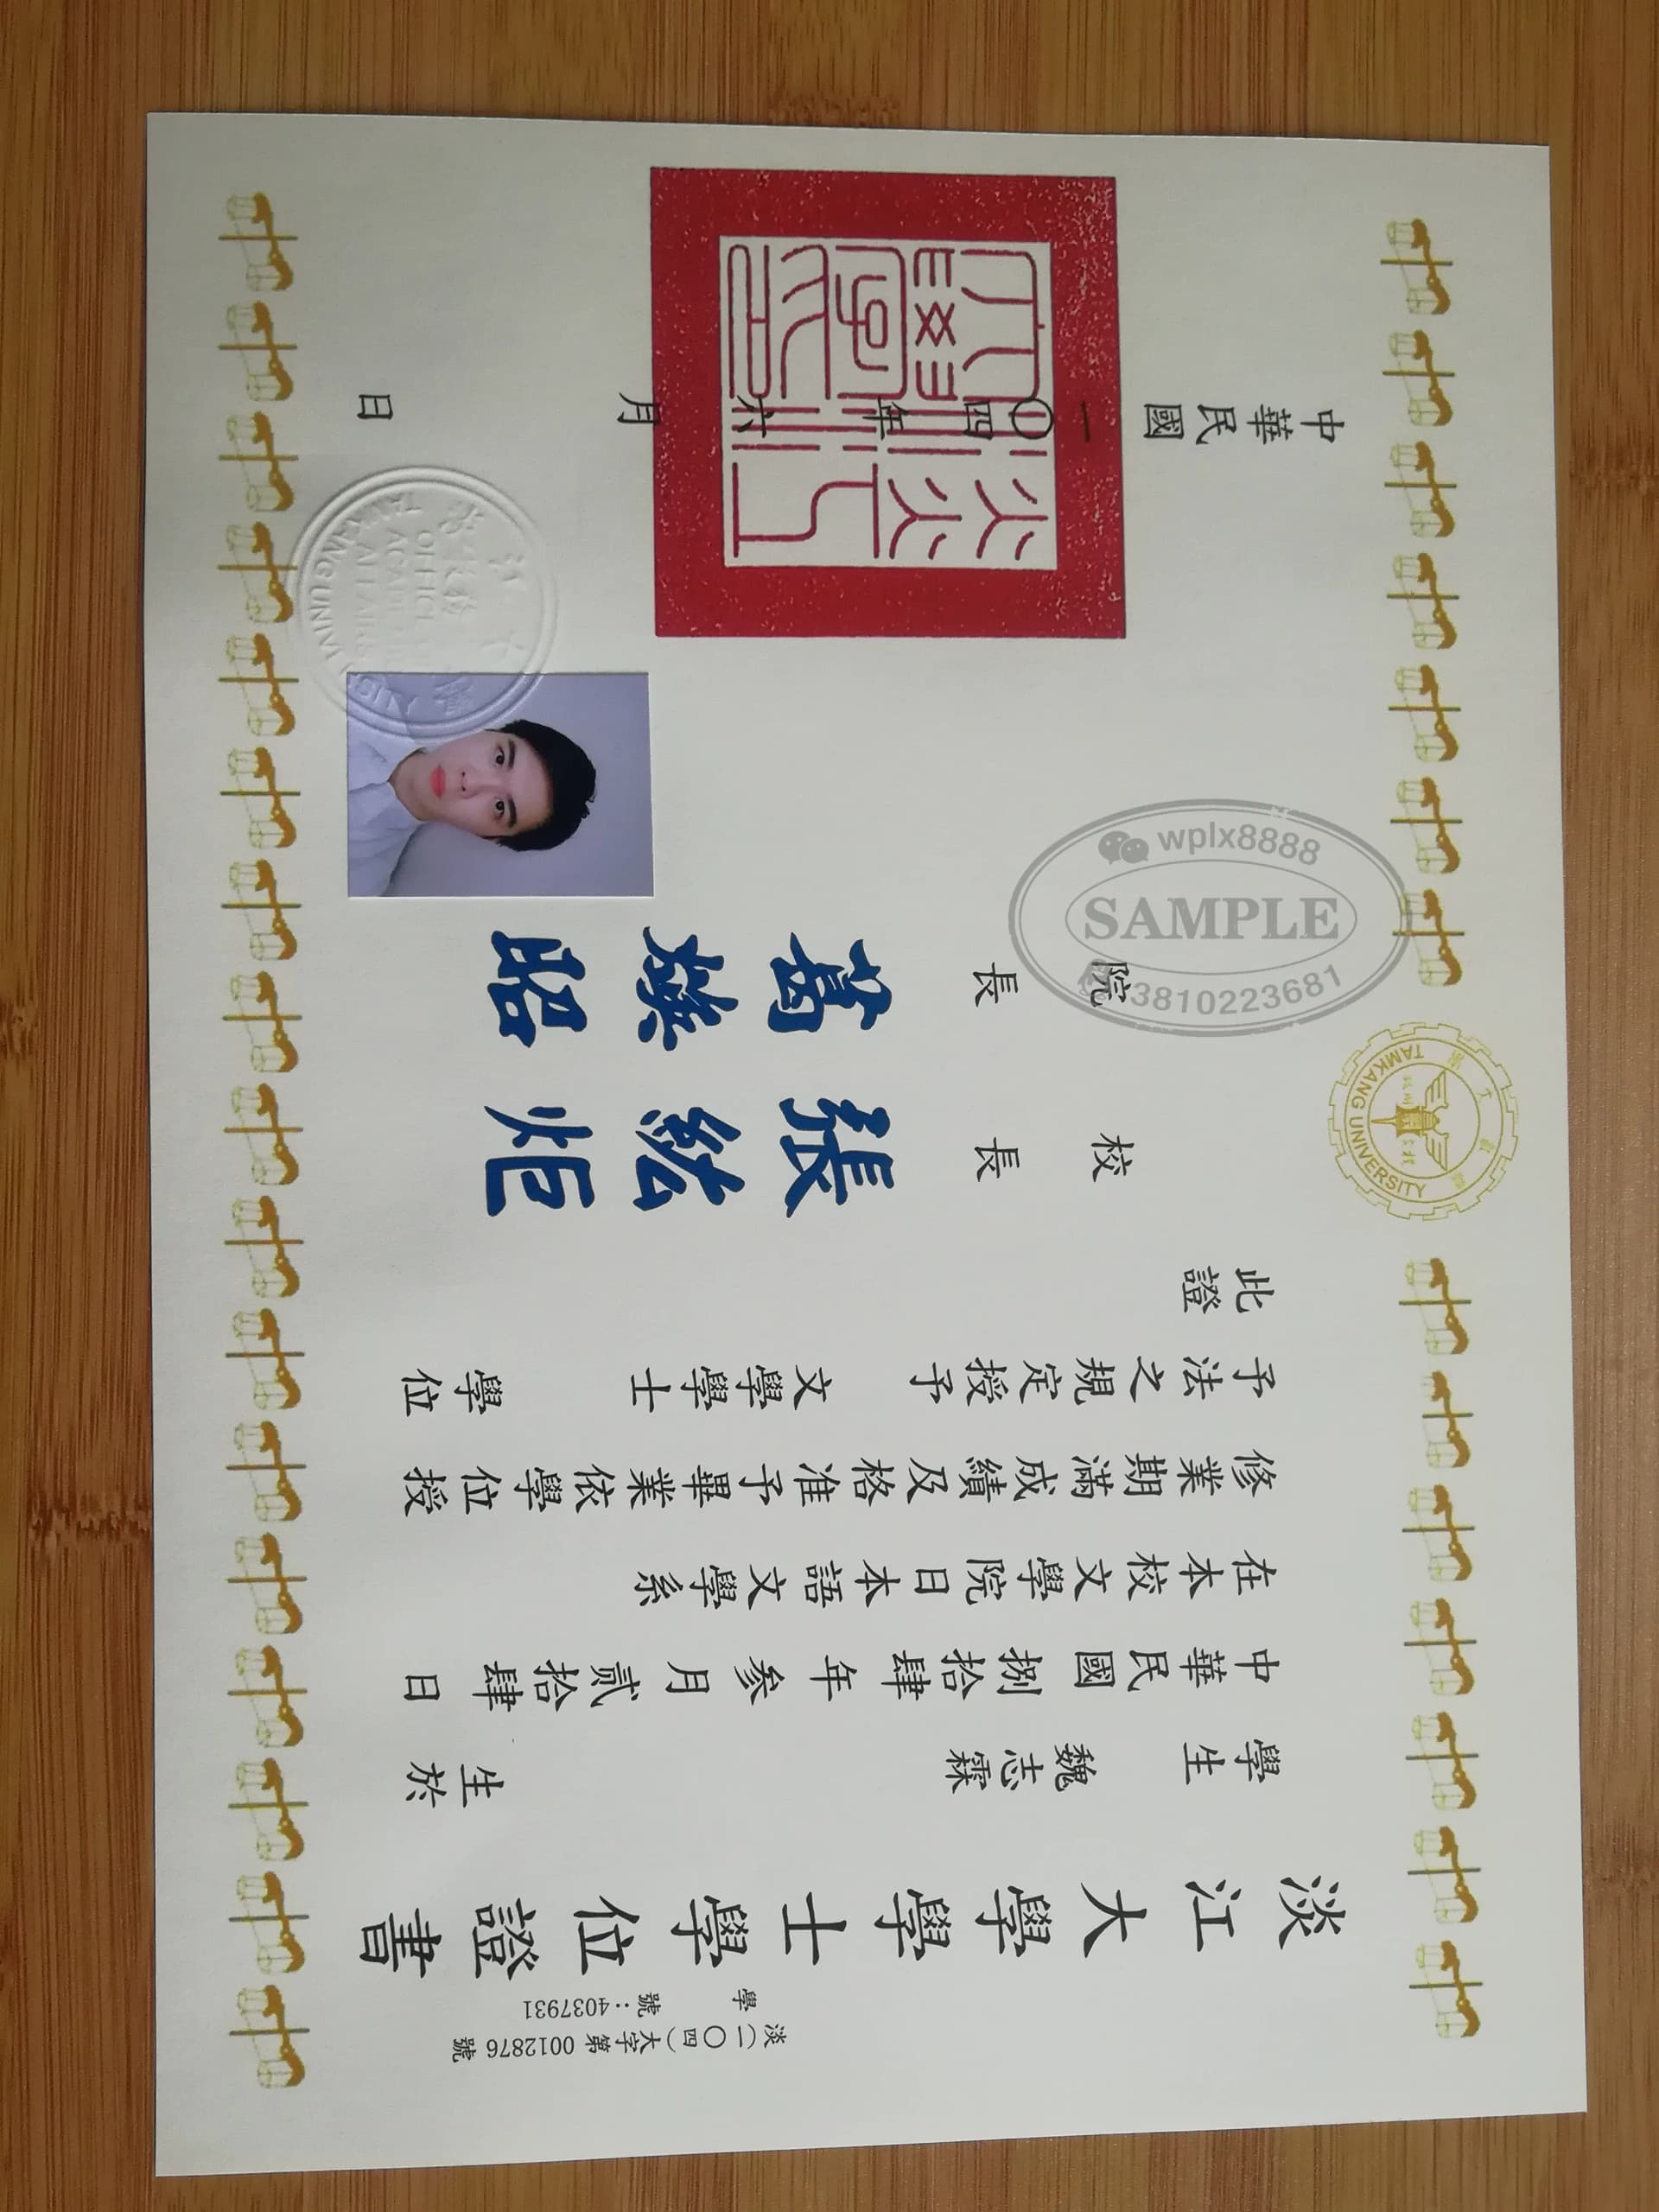 淡江大學學士學位證書
淡(一〇四)大字第 0012876 號
學 號:4037931
學生 魏志霖 生於
中華民國捌拾肆年參月貳拾肆日
在本校文學院日本語文學系
修業期滿成績及格准予畢業依學位授
予法之規定授予 文學學士 學位
此證
校長 張
院長 葛煥昭
中華民國一〇四年六月 日
TAMKANG UNIVERSITY
TAMKANG UNIVERSITY
wplx8888
SAMPLE
3810223681